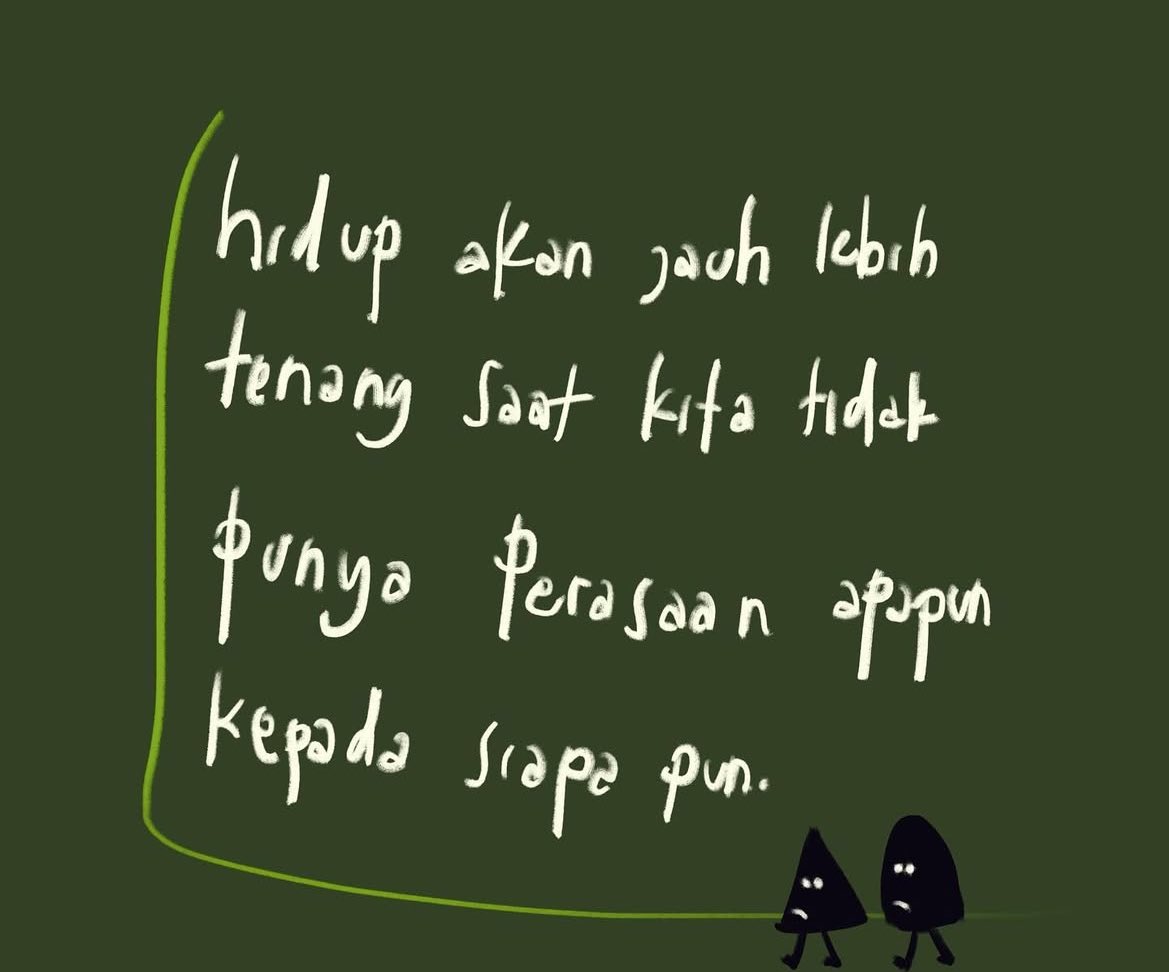 hidup akan jauh lebih
tenang saat kita tidak
punya perasaan apapun
kepada siapa pun.